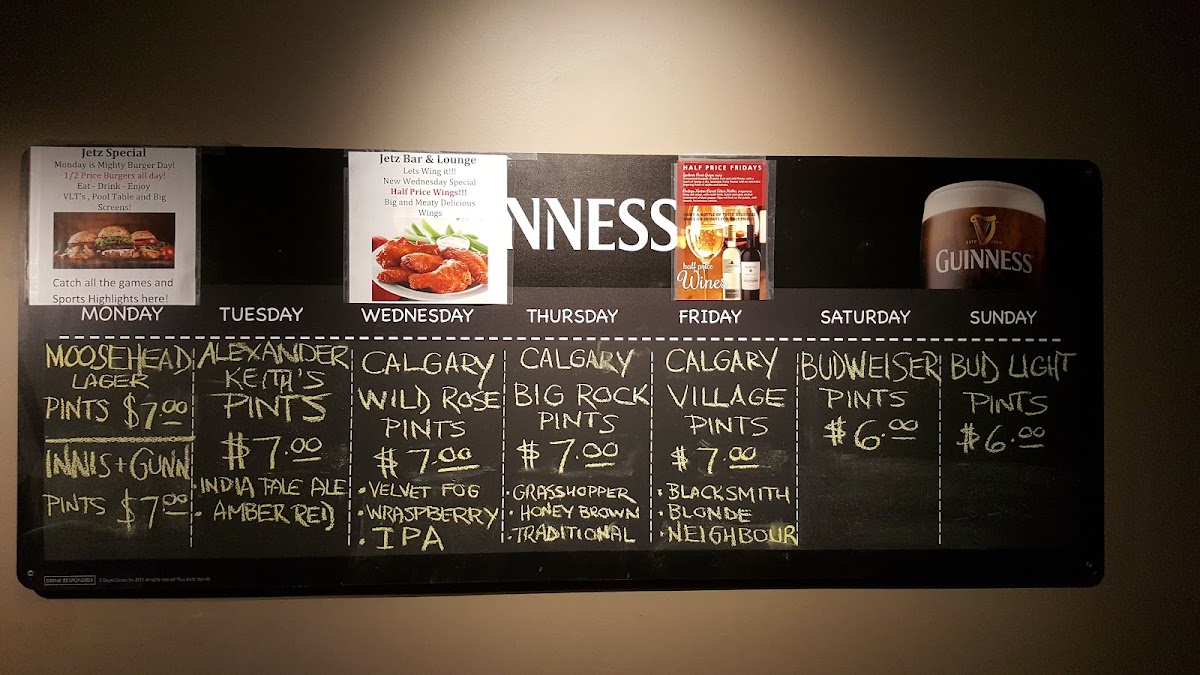 Jetz Special
Monday is Mighty Burger Day!
1/2 Price Burgers all day!
Eat - Drink - Enjoy
VLT's , Pool Table and Big
Screens!
Catch all the games and
Sports Highlights here!
Jetz Bar & Lounge
Lets Wing it!!!
New Wednesday Special
Half Price Wings!!!
Big and Meaty Delicious
Wings
NNESS
HALF PRICE FRIDAYS
half price
Wines
GUINNESS
MONDAY
MOOSEHEAD
LAGER
PINTS $7.00
INNIS + GUNN
PINTS $7.00
TUESDAY
ALEXANDER
KEITH'S
PINTS
$7.00
• INDIA PALE ALE
• AMBER RED
WEDNESDAY
CALGARY
WILD ROSE
PINTS
$7.00
• VELVET FOG
• WRASPBERRY
• IPA
THURSDAY
CALGARY
BIG ROCK
PINTS
$7.00
• GRASSHOPPER
• HONEY BROWN
• TRADITIONAL
FRIDAY
CALGARY
VILLAGE
PINTS
$7.00
• BLACKSMITH
• BLONDE
• NEIGHBOUR
SATURDAY
BUDWEISER
PINTS
$6.00
SUNDAY
BUD LIGHT
PINTS
$6.00
DRINK RESPONSIBLY